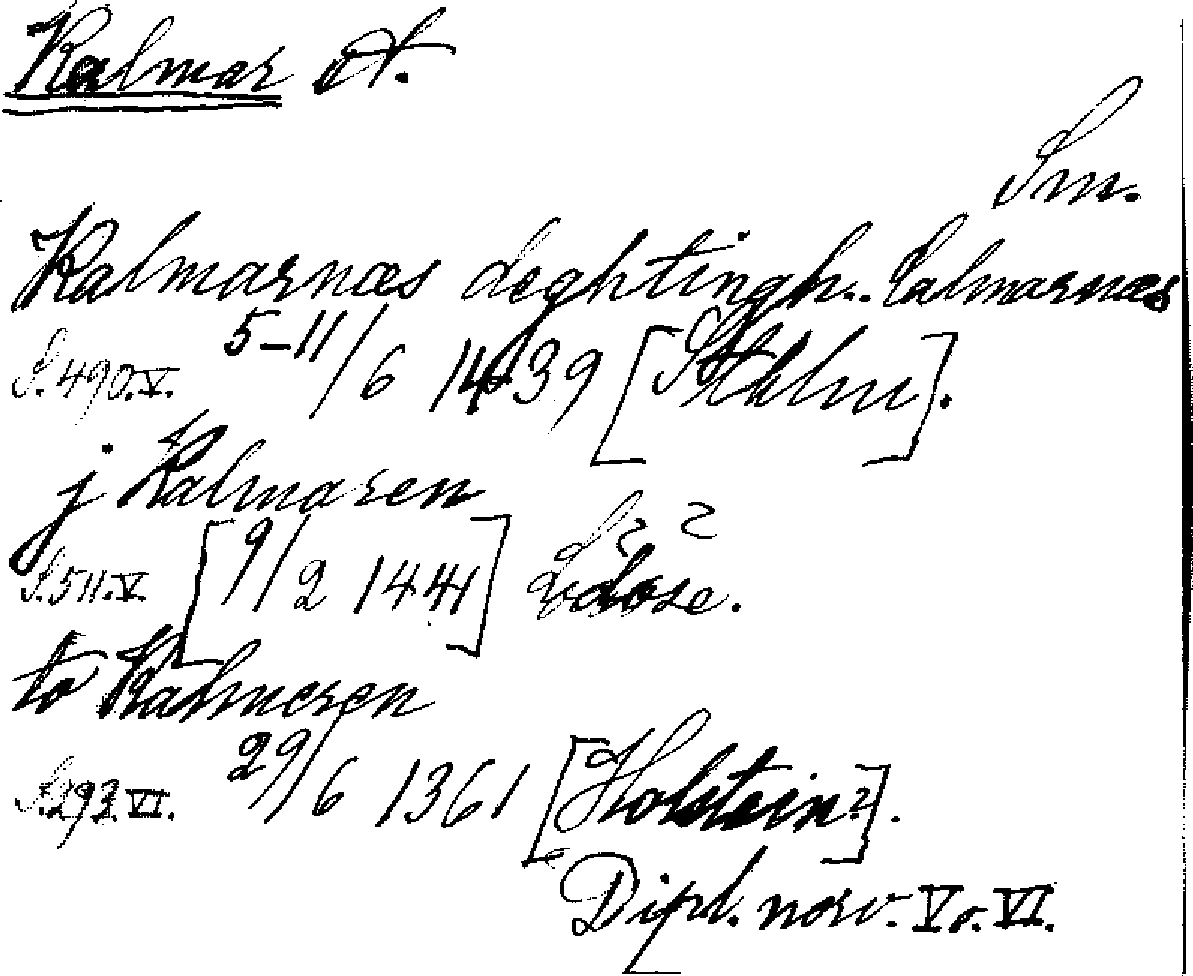 Kalmar st.
Sm.
Kalmarnæs deghtingh.. Calmarnæs
S. 490. V. 5–11/6 1439 [Sthlm].
j Kalmaren
S. 511. V. [9/2 1441] Lödöse.
to Kalmeren
S. 293. VI. 29/6 1361 [Holstein?].
Dipl. norv. V o. VI.